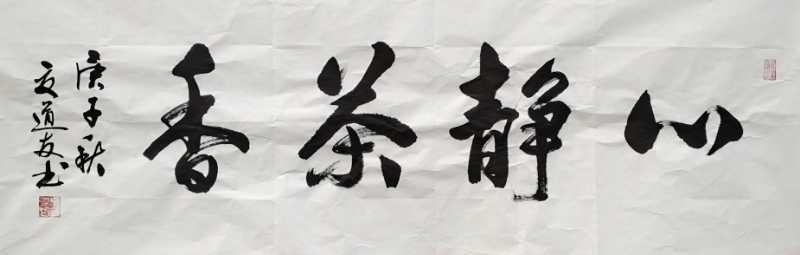 心静茶香
庚子秋
道友书